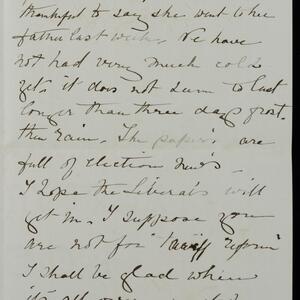 thankful to say she went to her
father last week. We have
not had very much cold
yet, it does not seem to last
longer than three days frost.
then rain. The papers are
full of Election News -
I hope the Liberals will
get in. I suppose you
are not for Tariff reform
I shall be glad when
it's all over